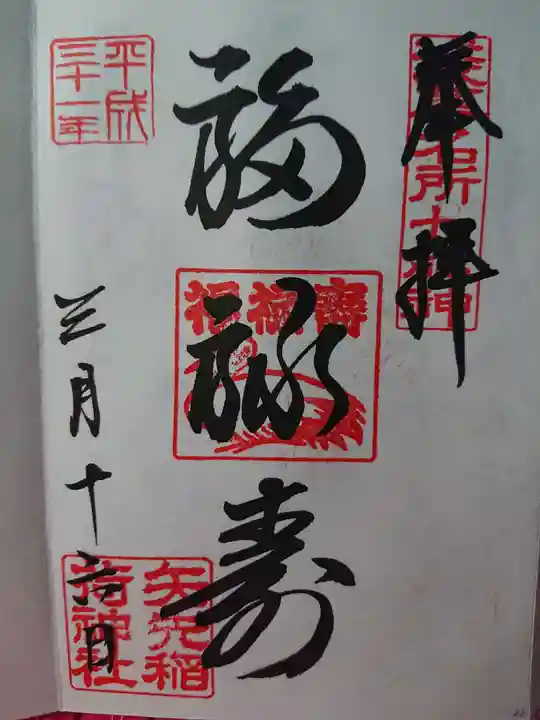 奉拝
浅草名所七福神
福禄寿
福禄壽
平成
三十一年
三月十六日
矢先稲
荷神社